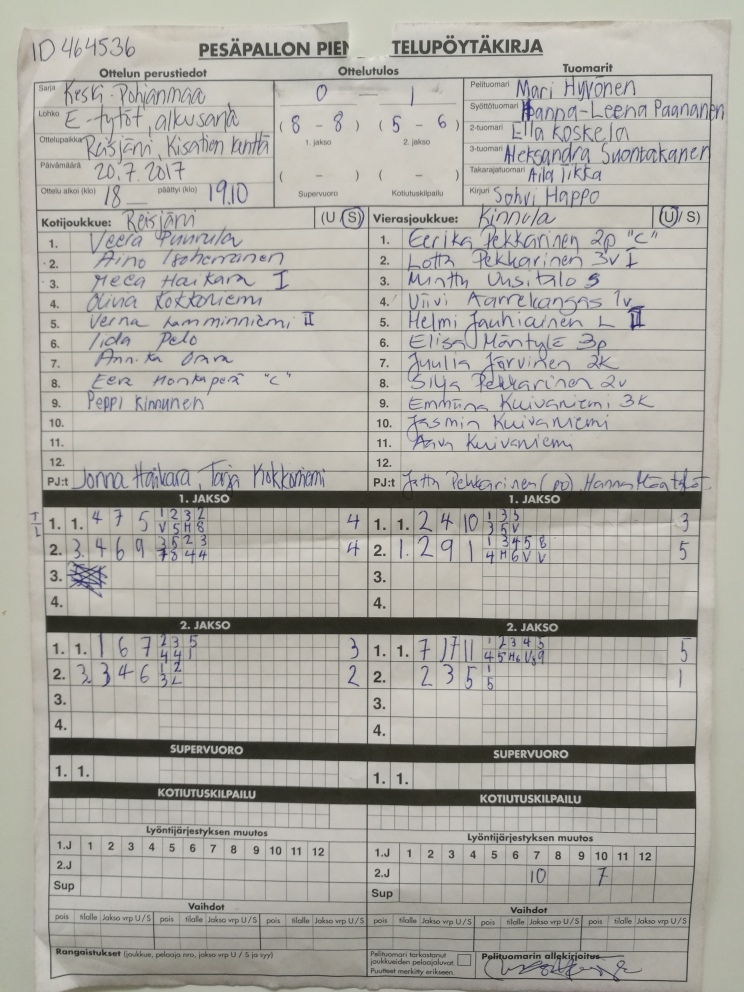 ID 464536
PESÄPALLON PIEN TELUPÖYTÄKIRJA
Ottelun perustiedot Ottelutulos Tuomarit
Sarja Keski-Pohjanmaa 0 — 1 Pelituomari Mari Hyvönen
Lohko E-tytöt, alkusarja (8 - 8) (5 - 6) Syöttötuomari Hanna-Leena Paananen
Ottelupaikka Reisjärvi, Kisatien kenttä 1. jakso 2. jakso 2-tuomari Ella Koskela
Päivämäärä 20.7.2017 3-tuomari Aleksandra Suontakanen
( - ) ( - ) Takarajatuomari Aila Tikka
Ottelu alkoi (klo) 18 päättyi (klo) 19.10 Supervuoro Kotiutuskilpailu Kirjuri Sohvi Happo
Kotijoukkue: Reisjärvi (U S) Vierasjoukkue: Kinnula (U / S)
1. Veera Puurula 1. Eerika Pekkarinen 2p "C"
2. Aino 2. Lotta Pekkarinen 3v I
3. Meea Haikara I 3. Minttu Uusitalo S
4. Olivia Kokkoniemi 4. Viivi Aarrekangas 1v
5. Verna Lamminniemi II 5. Helmi Jauhiainen L II
6. Iida Pelo 6. Elisa Mäntylä 3p
7. Annika 7. Juulia Järvinen 2K
8. Eera Honkaperä "C" 8. Silja Pekkarinen 2v
9. Peppi Kinnunen 9. Emmiina Kuivaniemi 3K
10. 10. Jasmin Kuivaniemi
11. 11. Aava Kuivaniemi
12. 12.
PJ:t Jonna Haikara, Tarja Kokkoniemi PJ:t Pekkarinen (pp), Hanna
1. JAKSO 1. JAKSO
T/L 1. 1. 4 7 5 1 2 3 2 4 1. 1. 2 4 10 1 3 5 3
V 5 H 8 3 5 V
2. 3. 4 6 9 3 5 2 3 4 2. 1. 2 9 1 1 3 4 5 8 5
7 8 4 4 4 H 6 V V
3. 3.
4. 4.
2. JAKSO 2. JAKSO
1. 1. 1 6 7 2 3 5 3 1. 1. 7 11 1 2 3 4 5 5
4 4 1 4 5 H6 9
2. 2 3 4 6 1 2 2 2. 2 3 5 1 1
3 L 5
3. 3.
4. 4.
SUPERVUORO SUPERVUORO
1. 1. 1. 1.
KOTIUTUSKILPAILU KOTIUTUSKILPAILU
Lyöntijärjestyksen muutos Lyöntijärjestyksen muutos
1.J 1 2 3 4 5 6 7 8 9 10 11 12 1.J 1 2 3 4 5 6 7 8 9 10 11 12
2.J 2.J 10 7
Sup Sup
Vaihdot Vaihdot
pois tilalle Jakso vrp U/S pois tilalle Jakso vrp U/S pois tilalle Jakso vrp U/S pois tilalle Jakso vrp U/S pois tilalle Jakso vrp U/S pois tilalle Jakso vrp U/S
Rangaistukset (joukkue, pelaaja nro, jakso vrp U / S ja syy) Pelituomari tarkastanut Pelituomarin allekirjoitus
joukkueiden pelaajaluvat
Puutteet merkitty erikseen.